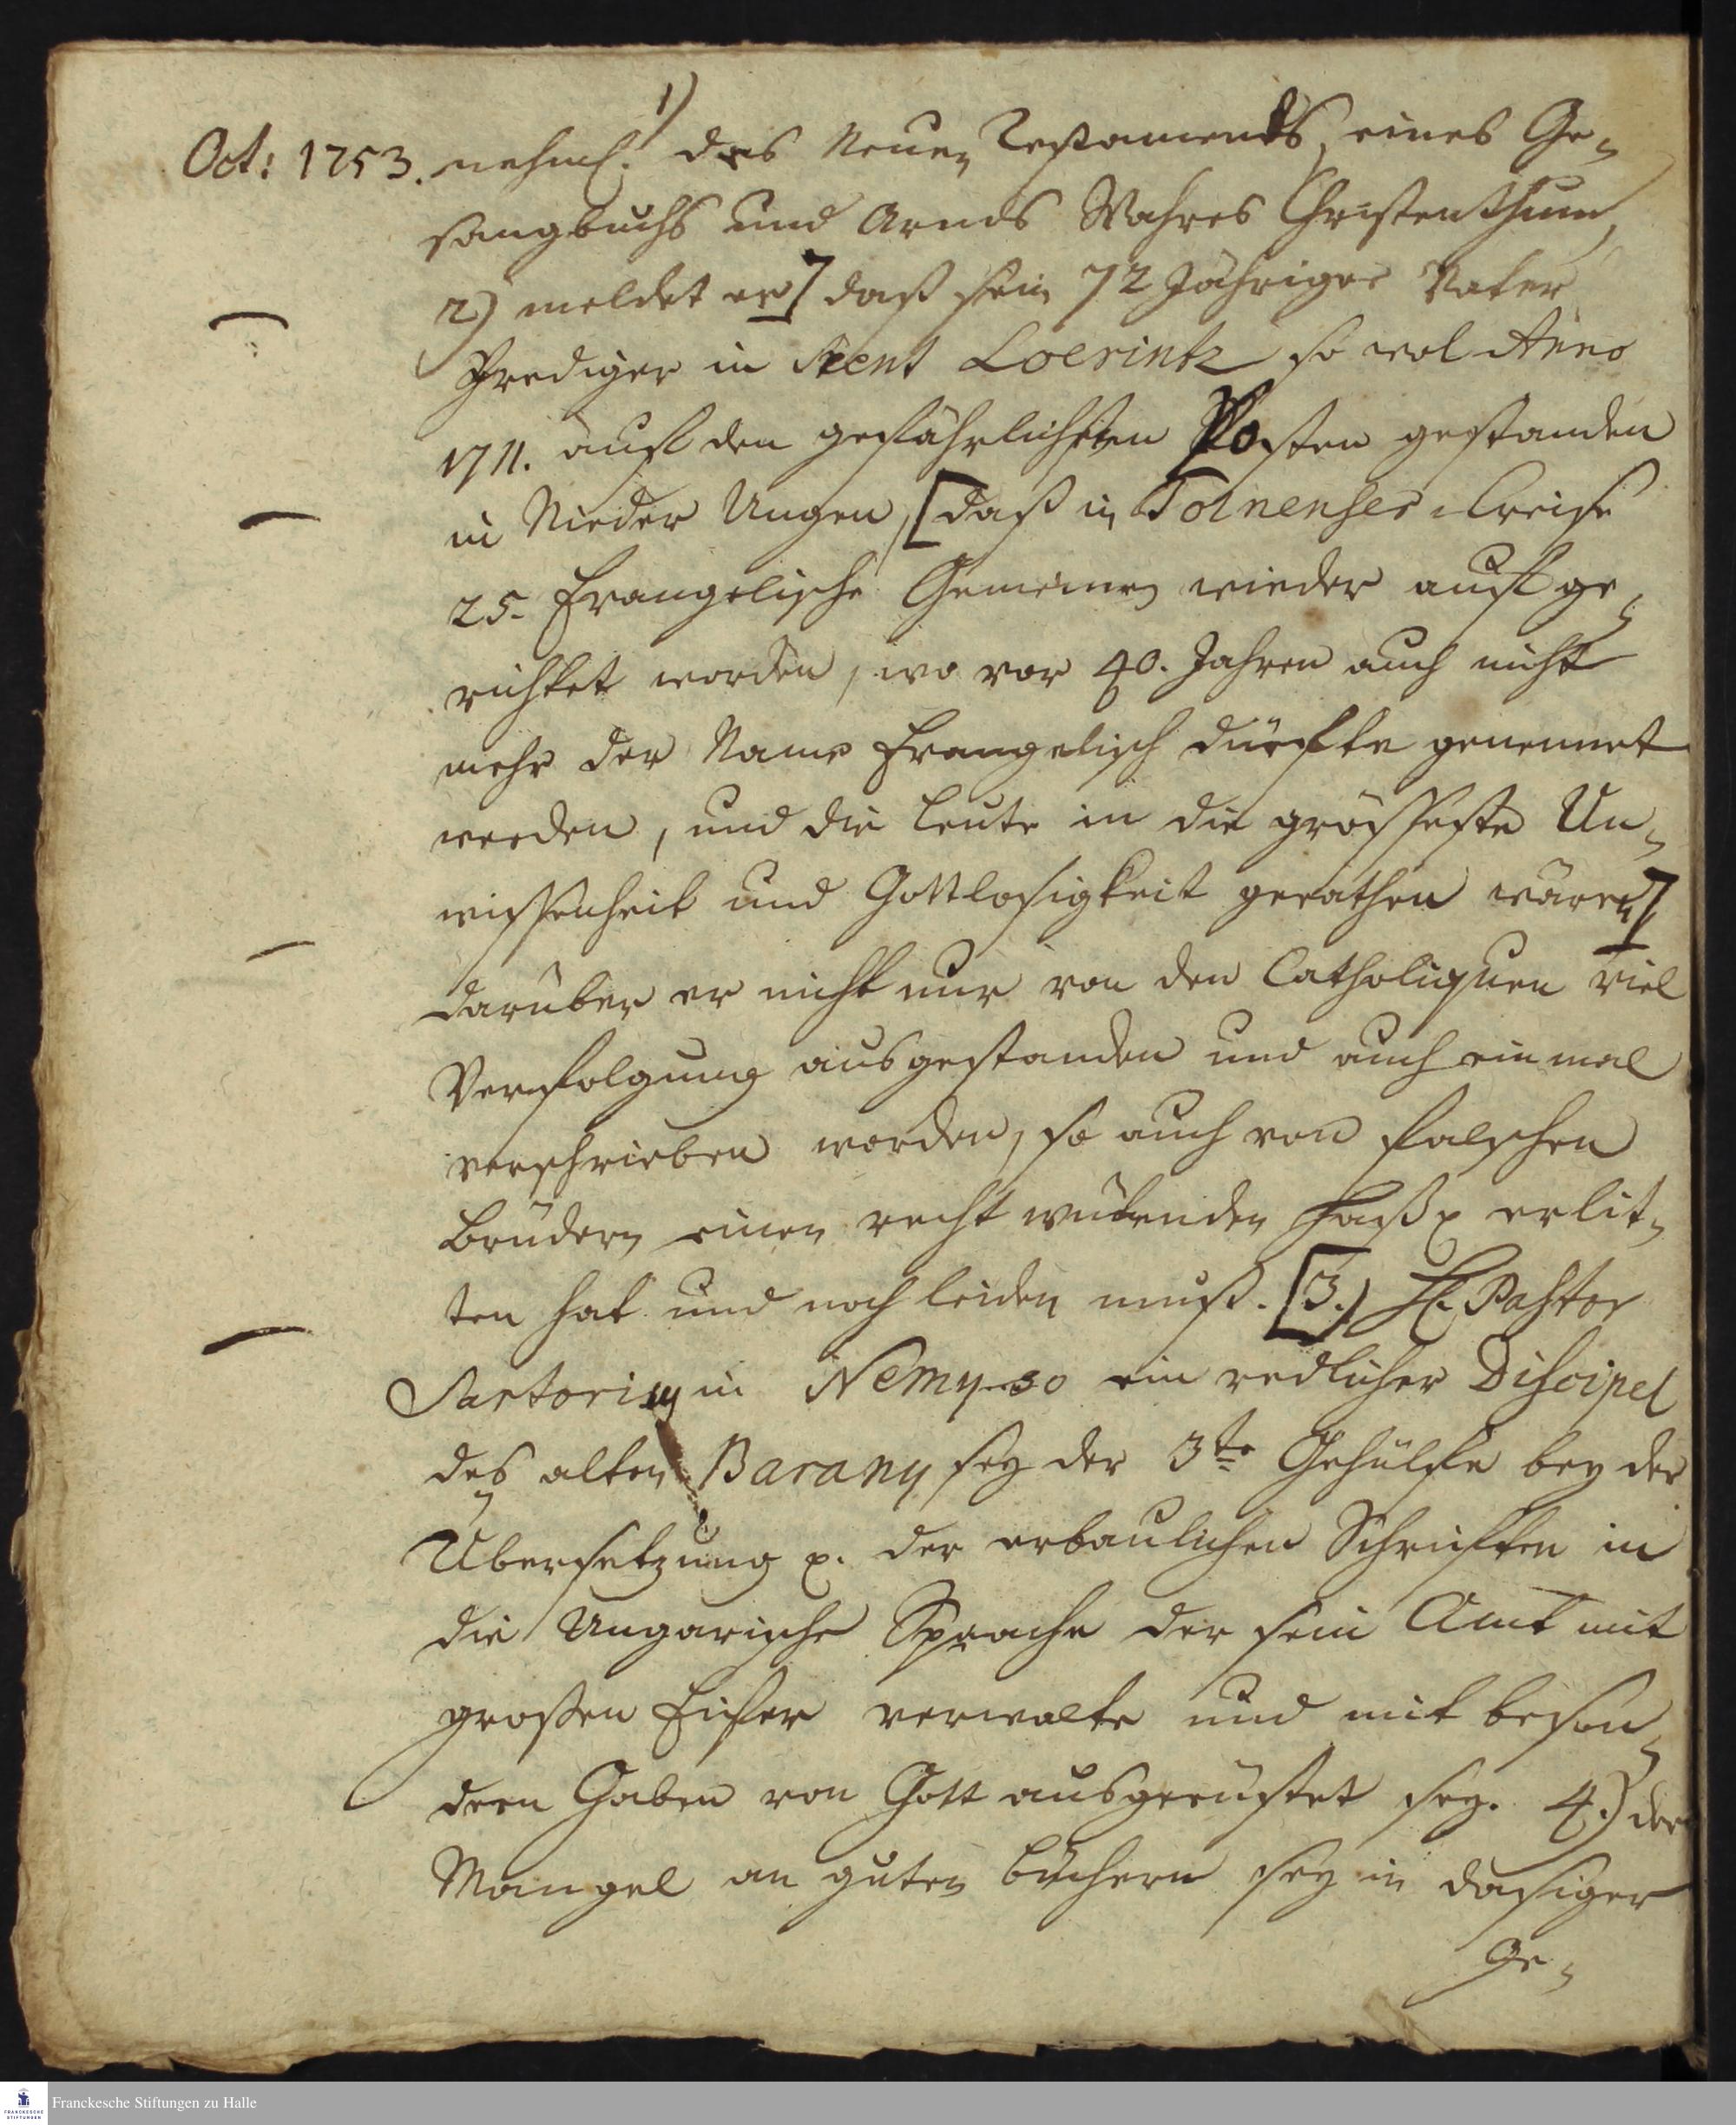 1)
Oct: 1753. nehml. des Neuen Testaments, eines Ge-
sangbuchs und Arnds Wahres Christenthum,
2) meldet er] daß sein 72 Jähriger Vater
Prediger in Szent Loerintz so wol Anno
1711. auf den gefährlichsten Posten gestanden
in Nieder Ungen, [daß in Tolnenser Creise
25. Evangelische Gemeinen wieder aufge-
richtet worden, wo vor 40. Jahren auch nicht
mehr der Name Evangelisch dürfte genennet
werden, und die Leute in die grösseste Un-
wissenheit und Gottlosigkeit gerathen wären]
darüber er nicht nur von den Catholiquen viel
Verfolgung ausgestanden und auch einmal
verschrieben worden, so auch von falschen
Brüdern einen recht wütenden Haß p erlit-
ten hat und noch leiden muß. [3.) H. Pastor
Sartorius in Nemys-so ein redlicher Discipel
des alten Barany sey der 3te Gehülfe bey der
Übersetzung p. der erbaulichen Schriften in
die Ungarische Sprache der sein Amt mit
großen Eifer verwalte und mit beson-
dern Gaben von Gott ausgerüstet sey. 4.) der
Mangel an guten Büchern sey in dasiger
Ge-
Franckesche Stiftungen zu Halle